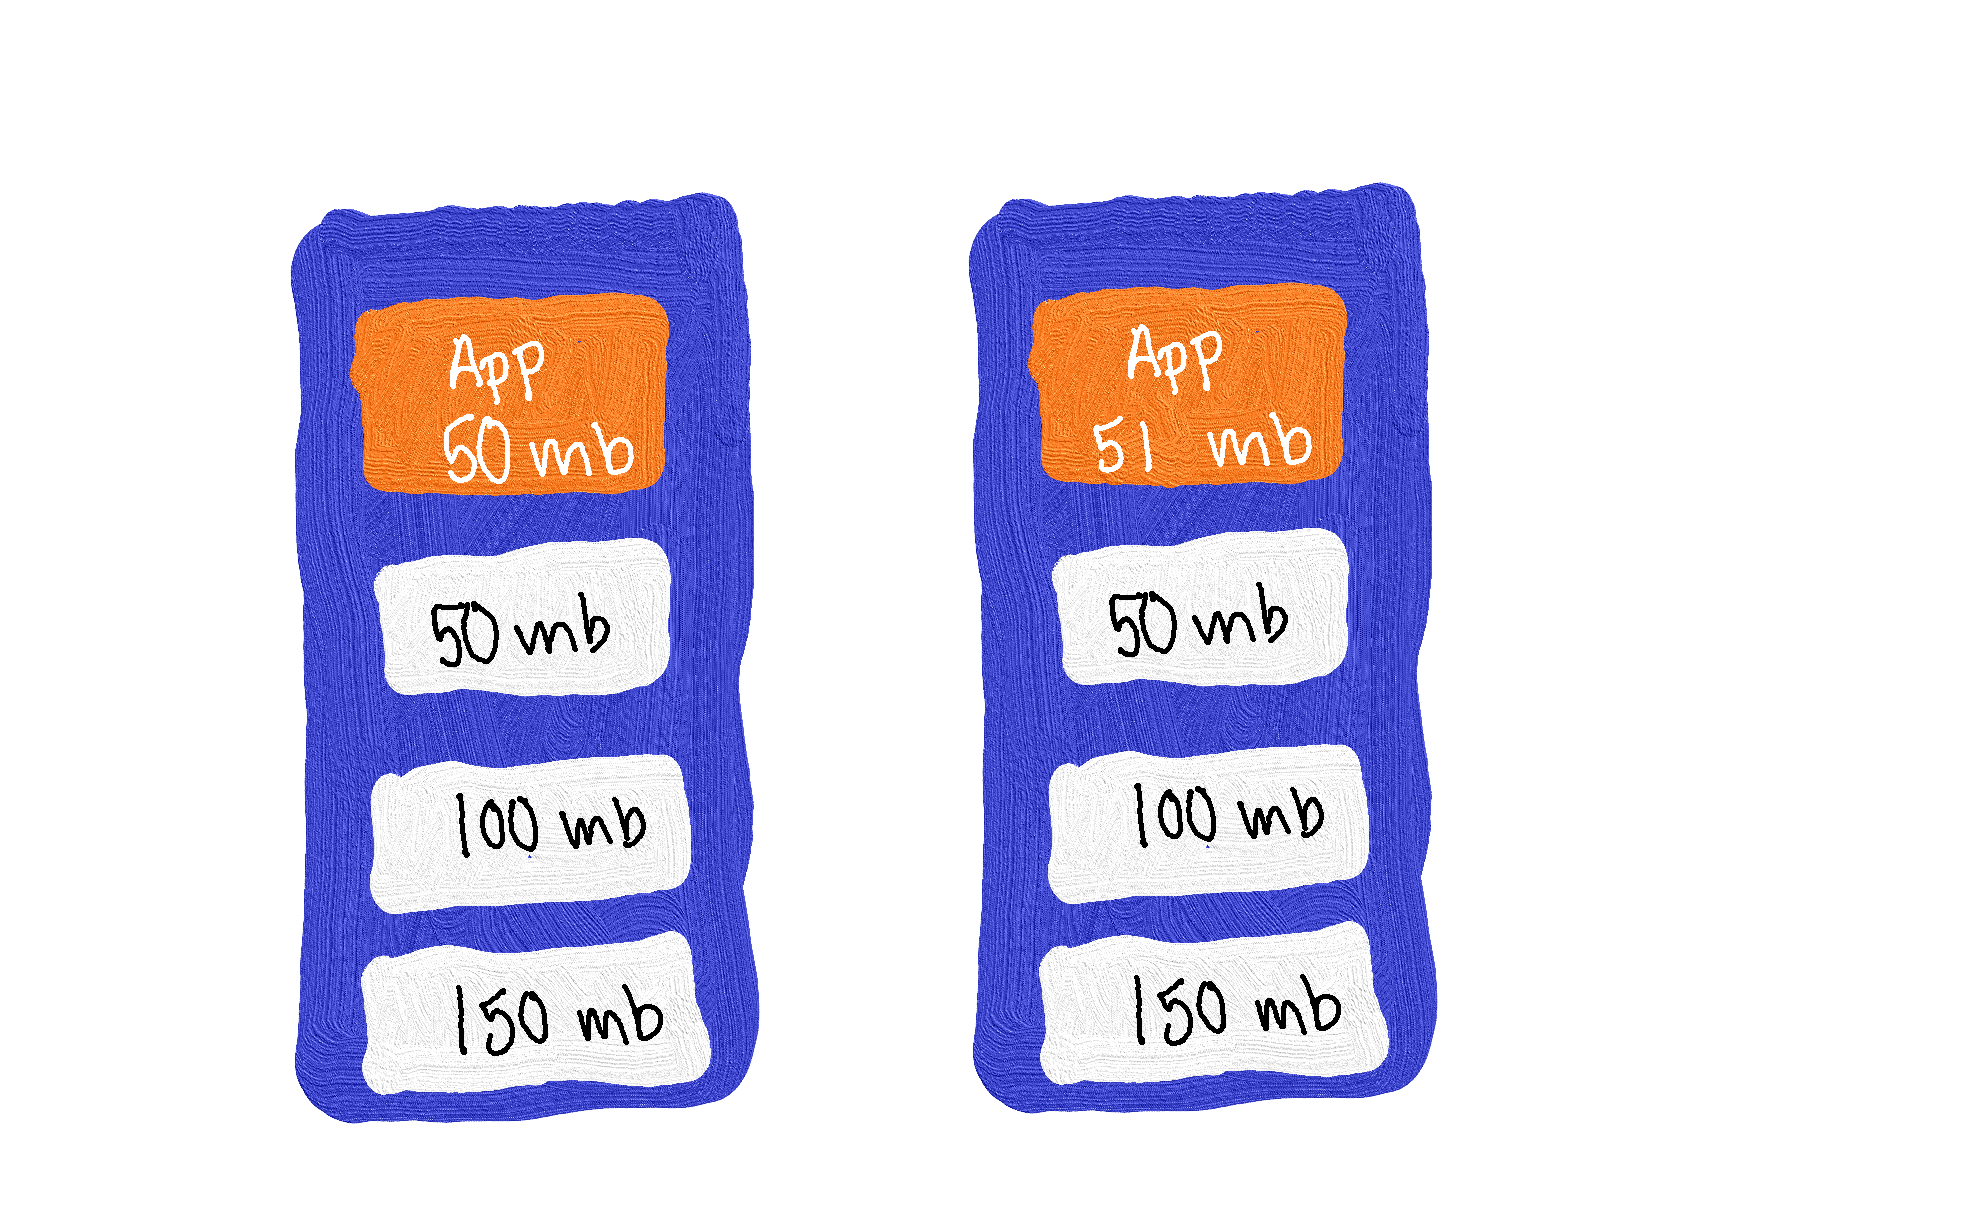 App
50 mb
50 mb
100 mb
150 mb
App
51 mb
50 mb
100 mb
150 mb